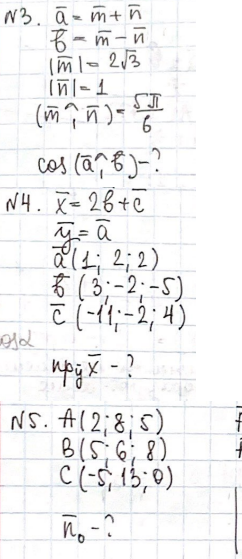 N3. a̅ = m̅ + n̅
b̅ = m̅ – n̅
|m̅| = 2√3
|n̅| = 1
(m̅ ^ n̅) = 5π/6
cos (a̅ ^ b̅) – ?
N4. x̅ = 2b + c̅
y̅ = a̅
a̅ (1; 2; 2)
b̅ (3; -2; -5)
c̅ (-11; -2; 4)
пр y̅ x̅ – ?
N5. A(2; 8; 5)
B(5; 6; 8)
C(-5; 13; 0)
n̅₀ – ?